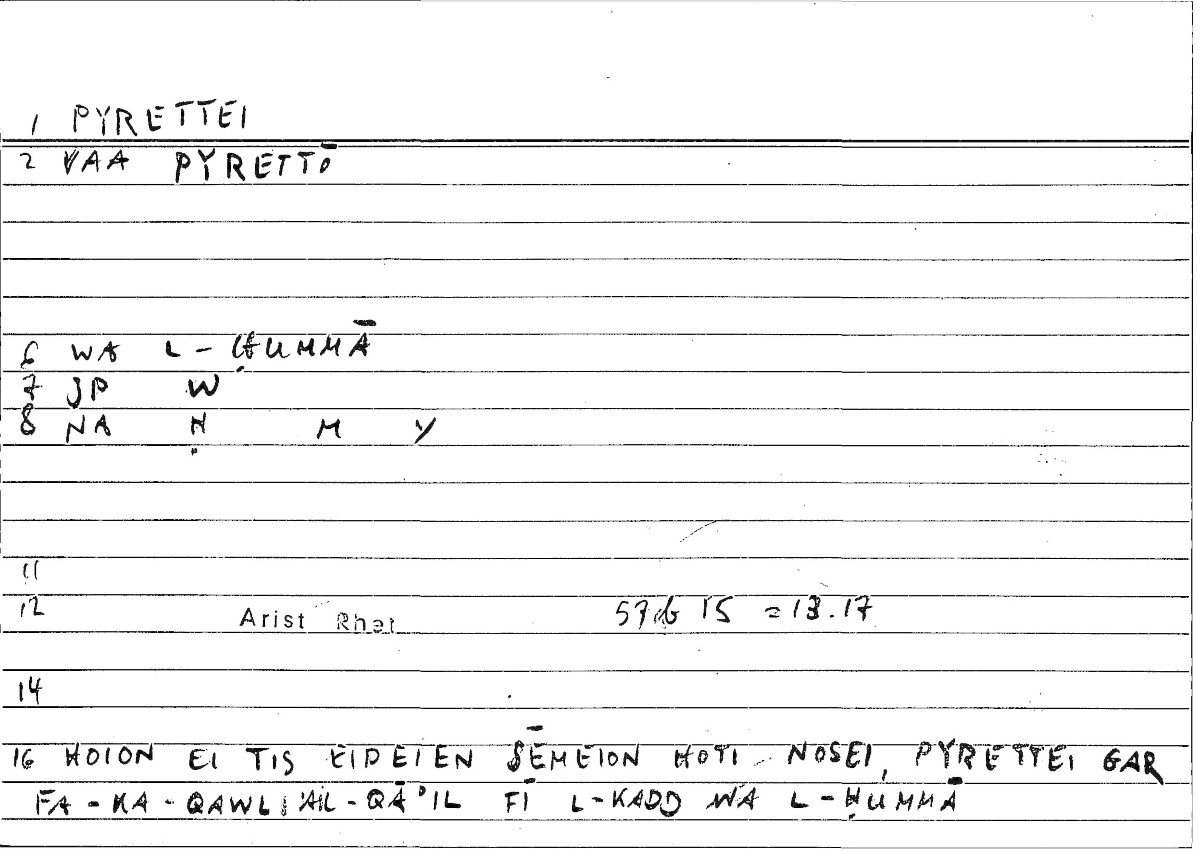 1 PYRETTEI
2 VAA PYRETTŌ
6 WA L-ḤUMMĀ
7 JP W
8 NA Ḥ M Y
11
12 Arist Rhet 57b 15 =13.17
14
16 HOION EI TIS EIDEIEN SĒMEION HOTI NOSEI, PYRETTEI GAR
FA-KA-QAWLI L-QĀ'IL FĪ L-KADD WA L-ḤUMMĀ